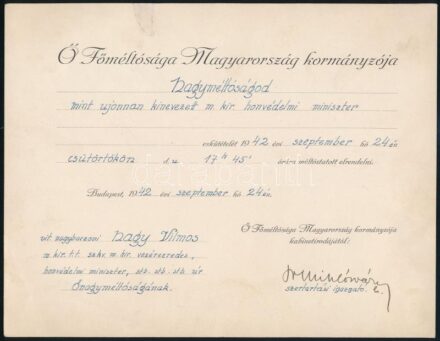 Ő Főméltósága Magyarország kormányzója
Nagyméltóságod
mint ujonnan kinevezett m. kir. honvédelmi miniszter
eskütételét 1942 évi szeptember hó 24 én
csütörtökön d.u. 17 h 45' órára méltóztatott elrendelni.
Budapest, 1942 évi szeptember hó 24 én.
vit. nagybaczoni Nagy Vilmos
m. kir. t.t. szkv. m. kir. vezérezredes,
honvédelmi miniszter, stb. stb. stb. úr
Őnagyméltóságának.
Ő Főméltósága Magyarország kormányzója
kabinetirodájától:
szertartási igazgató